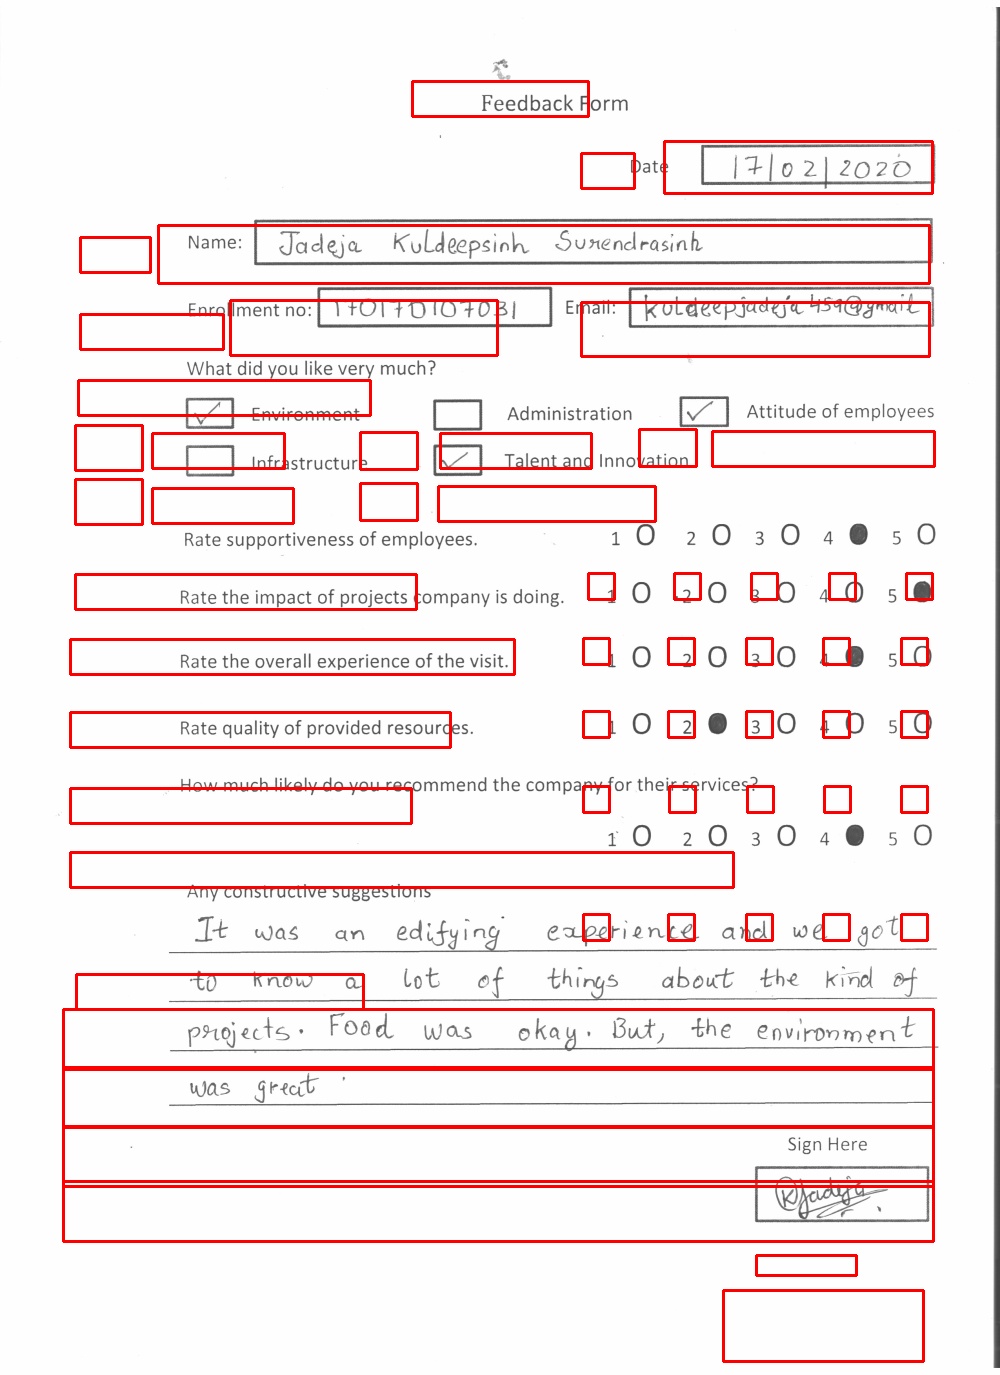 Feedback Form
Date 17/02/2020
Name: Jadeja Kuldeepsinh Surendrasinh
Enrollment no: 170170107031 Email: kuldeepjadeja459@gmail
What did you like very much?
Environment Administration Attitude of employees
Infrastructure Talent and Innovation
Rate supportiveness of employees. 1 2 3 4 5
Rate the impact of projects company is doing. 1 2 3 4 5
Rate the overall experience of the visit. 1 2 3 4 5
Rate quality of provided resources. 1 2 3 4 5
How much likely do you recommend the company for their services?
1 2 3 4 5
Any constructive suggestions
It was an edifying experience and we got
to know a lot of things about the kind of
projects. Food was okay. But, the environment
was great
Sign Here
KJadeja